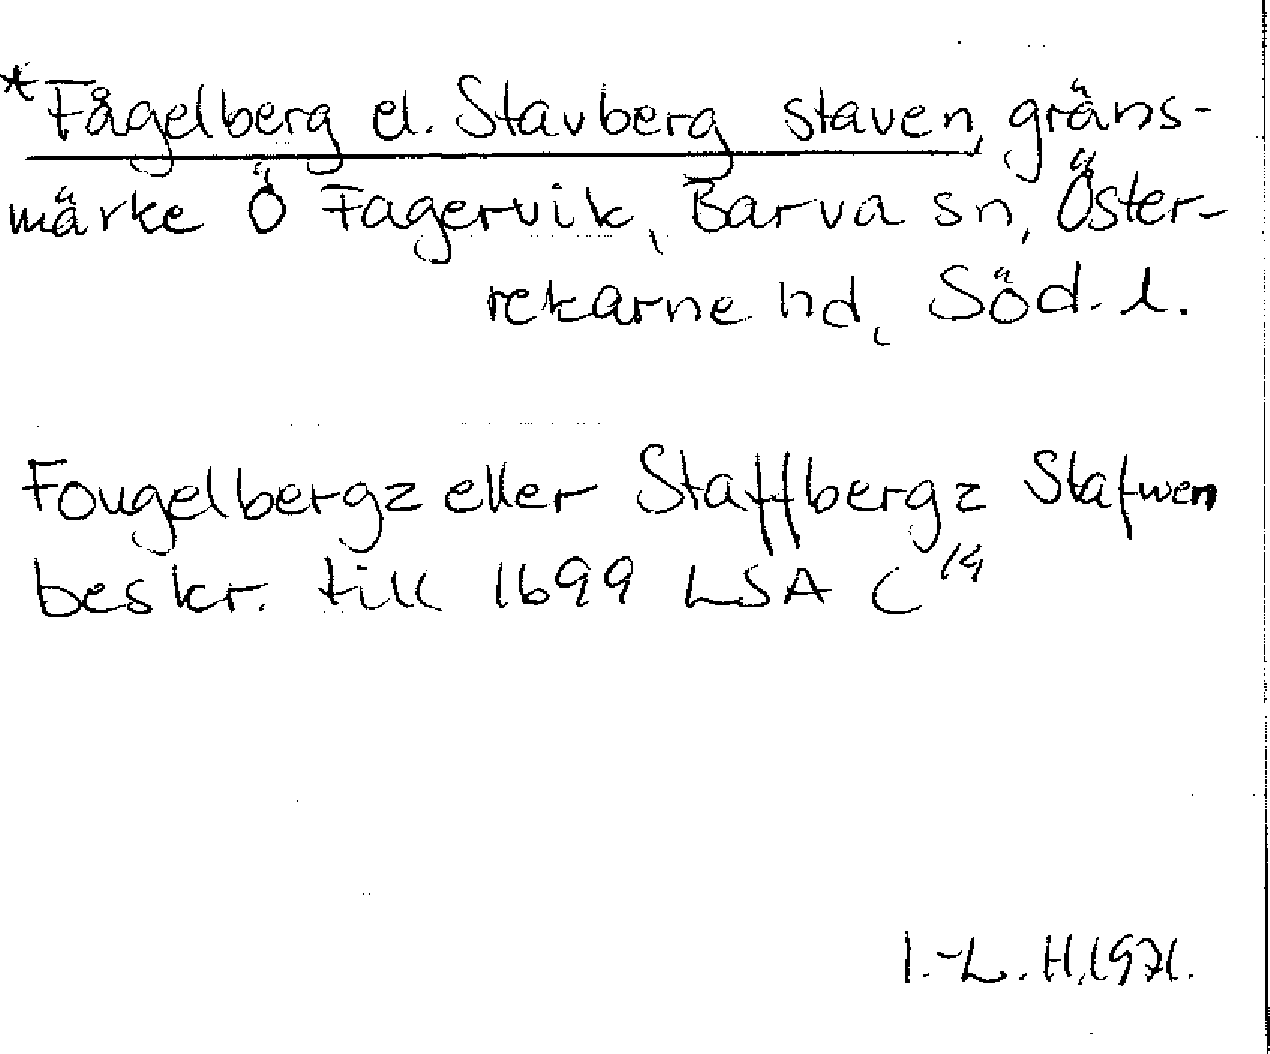 *Fågelberg el. Stavberg staven, gräns-
märke Ö Fagervik, Barva sn, Öster-
rekarne hd, Söd. l.
Fougelbergz eller Staffbergz Stafwen
beskr. till 1699 LSA C 14
I.-L. H. 1971.